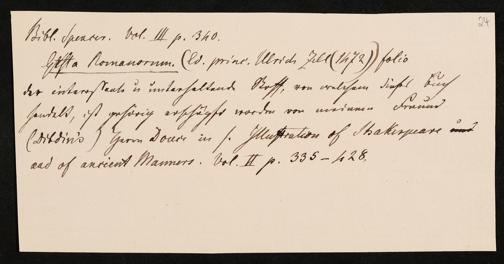 24
Bibl. Spencer. Vol. III p. 340.
Gesta Romanorum. (Ed. princ. Ulrich Zell (1472)) folio
der interessante u unterhaltende Stoff, von welchem dieses Buch
handelt, ist gehörig erschöpft worden von meinem Freund
(Dibdin's) Herrn Douce in s. Illustration of Shakespeare und
and of ancient Manners. Vol. II p. 335-428.